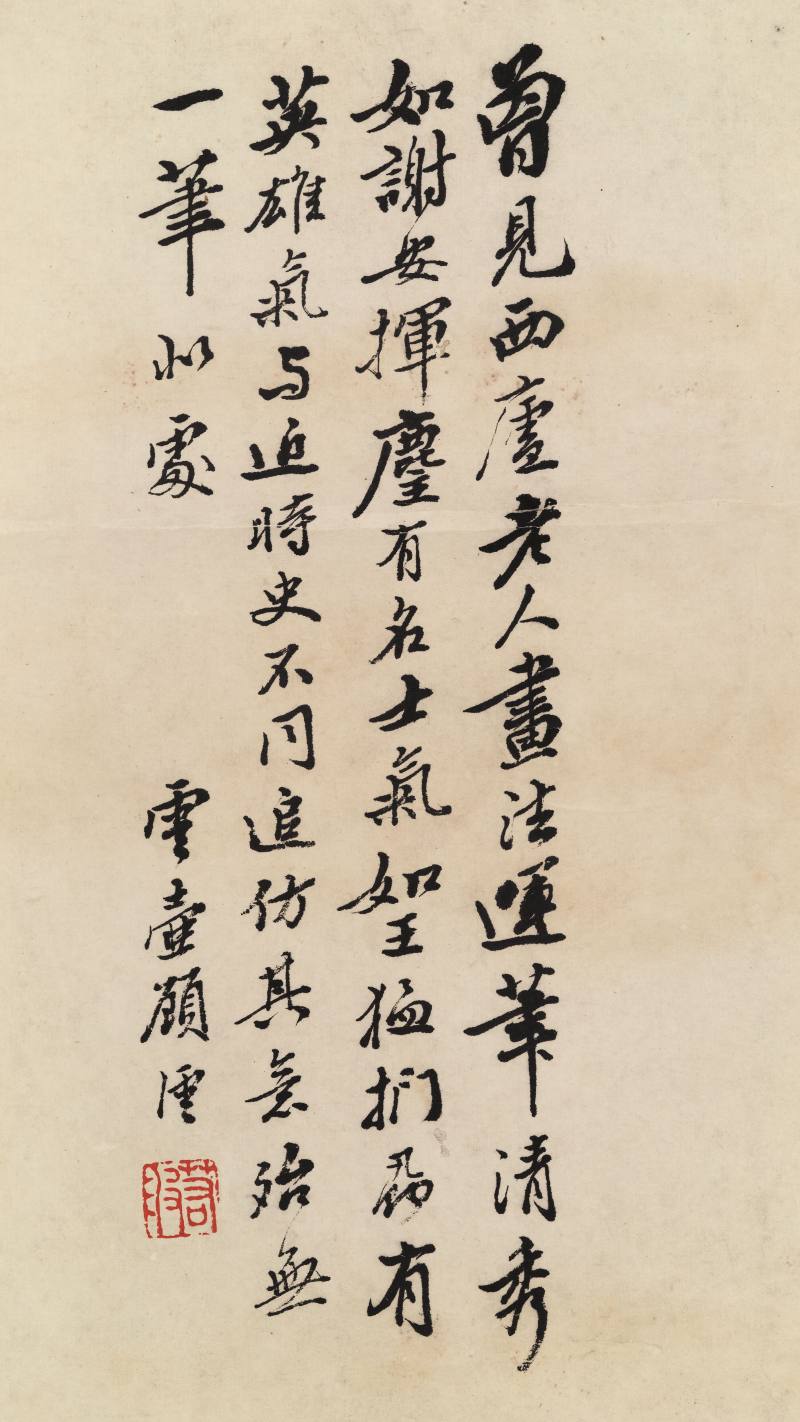 曾見西廬老人畫法運筆清秀
如謝安揮麈有名士氣如王猛捫虱有
英雄氣与近時史不同追仿其意殆無
一筆似處
雲壺顧澐